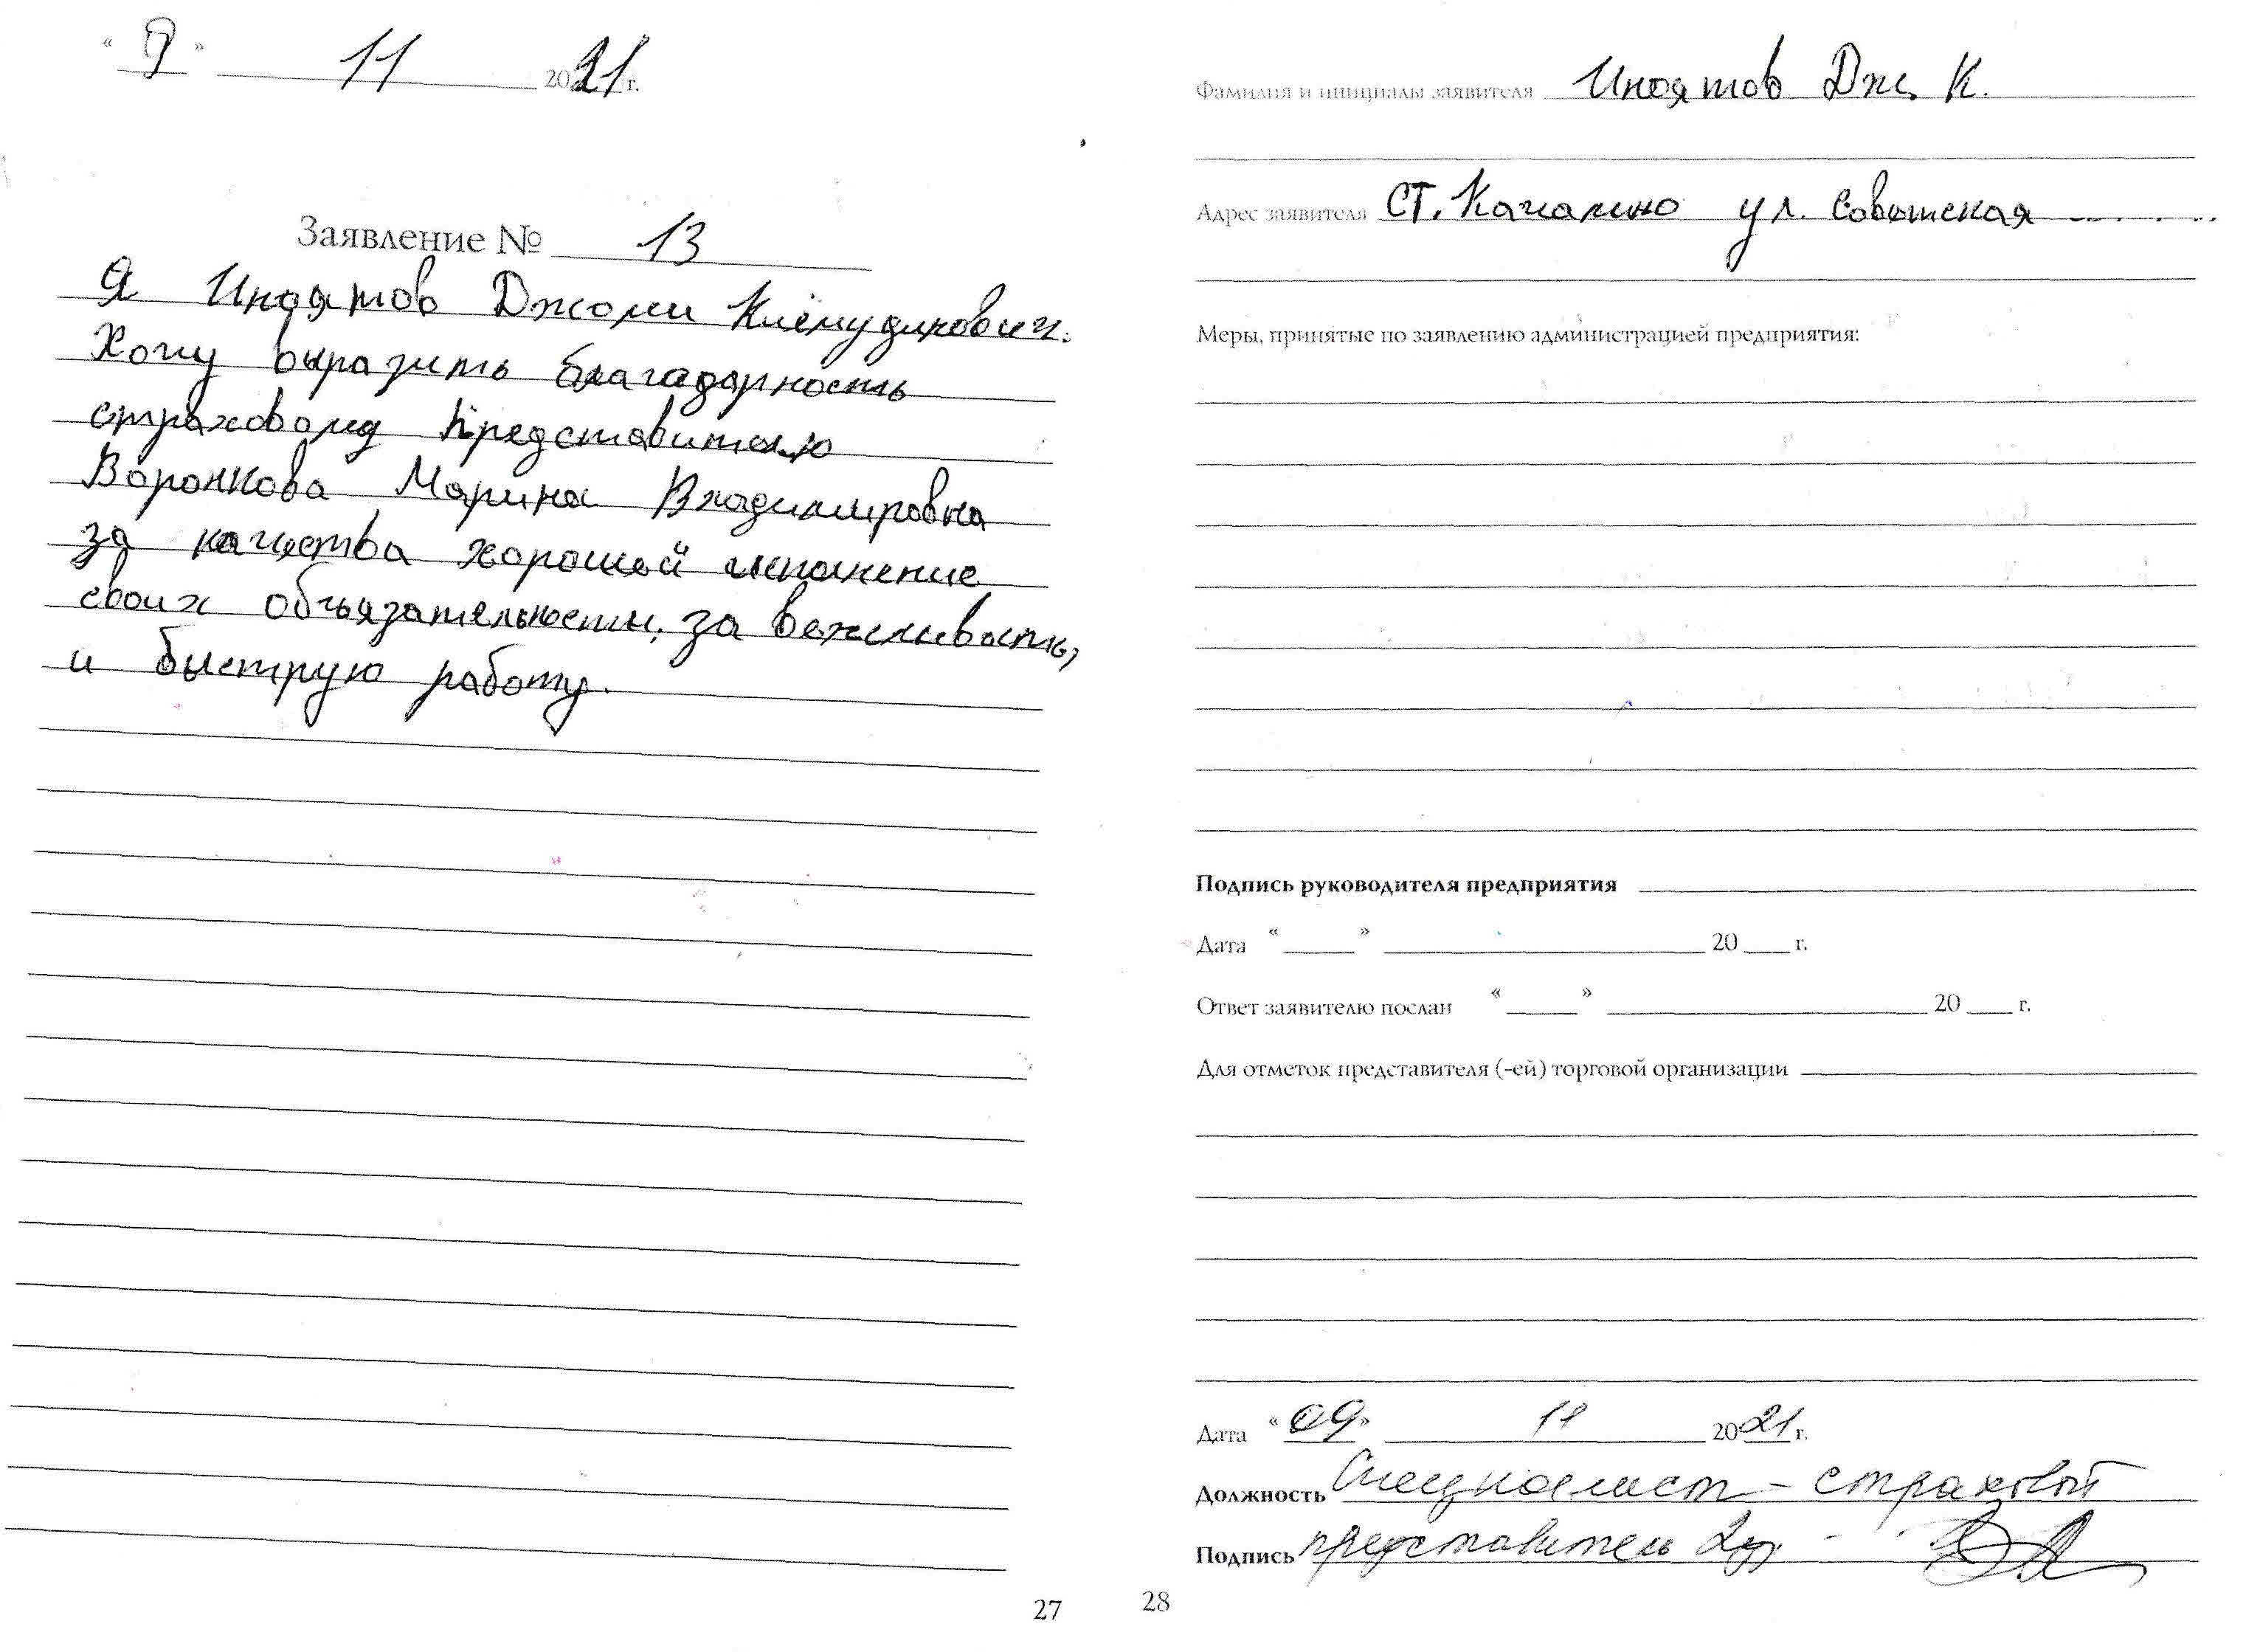 « 9 » 11 2021 г.
Заявление № 13
Я Иноятов Джоми Киёмудинович.
Хочу выразить благадарность
страховому представителю
Воронкова Марина Владимировна
за качества хорошей исполнение
своих объязательности, за вежливость,
и быструю работу.
27
Фамилия и инициалы заявителя Иноятов Дж. К.
Адрес заявителя СТ. Качалино ул. Советская
Меры, принятые по заявлению администрацией предприятия:
Подпись руководителя предприятия
Дата « » 20 г.
Ответ заявителю послан « » 20 г.
Для отметок представителя (-ей) торговой организации
Дата « 09 » 11 2021 г.
Должность Специалист - страховой
Подпись представитель 2 ур.
28